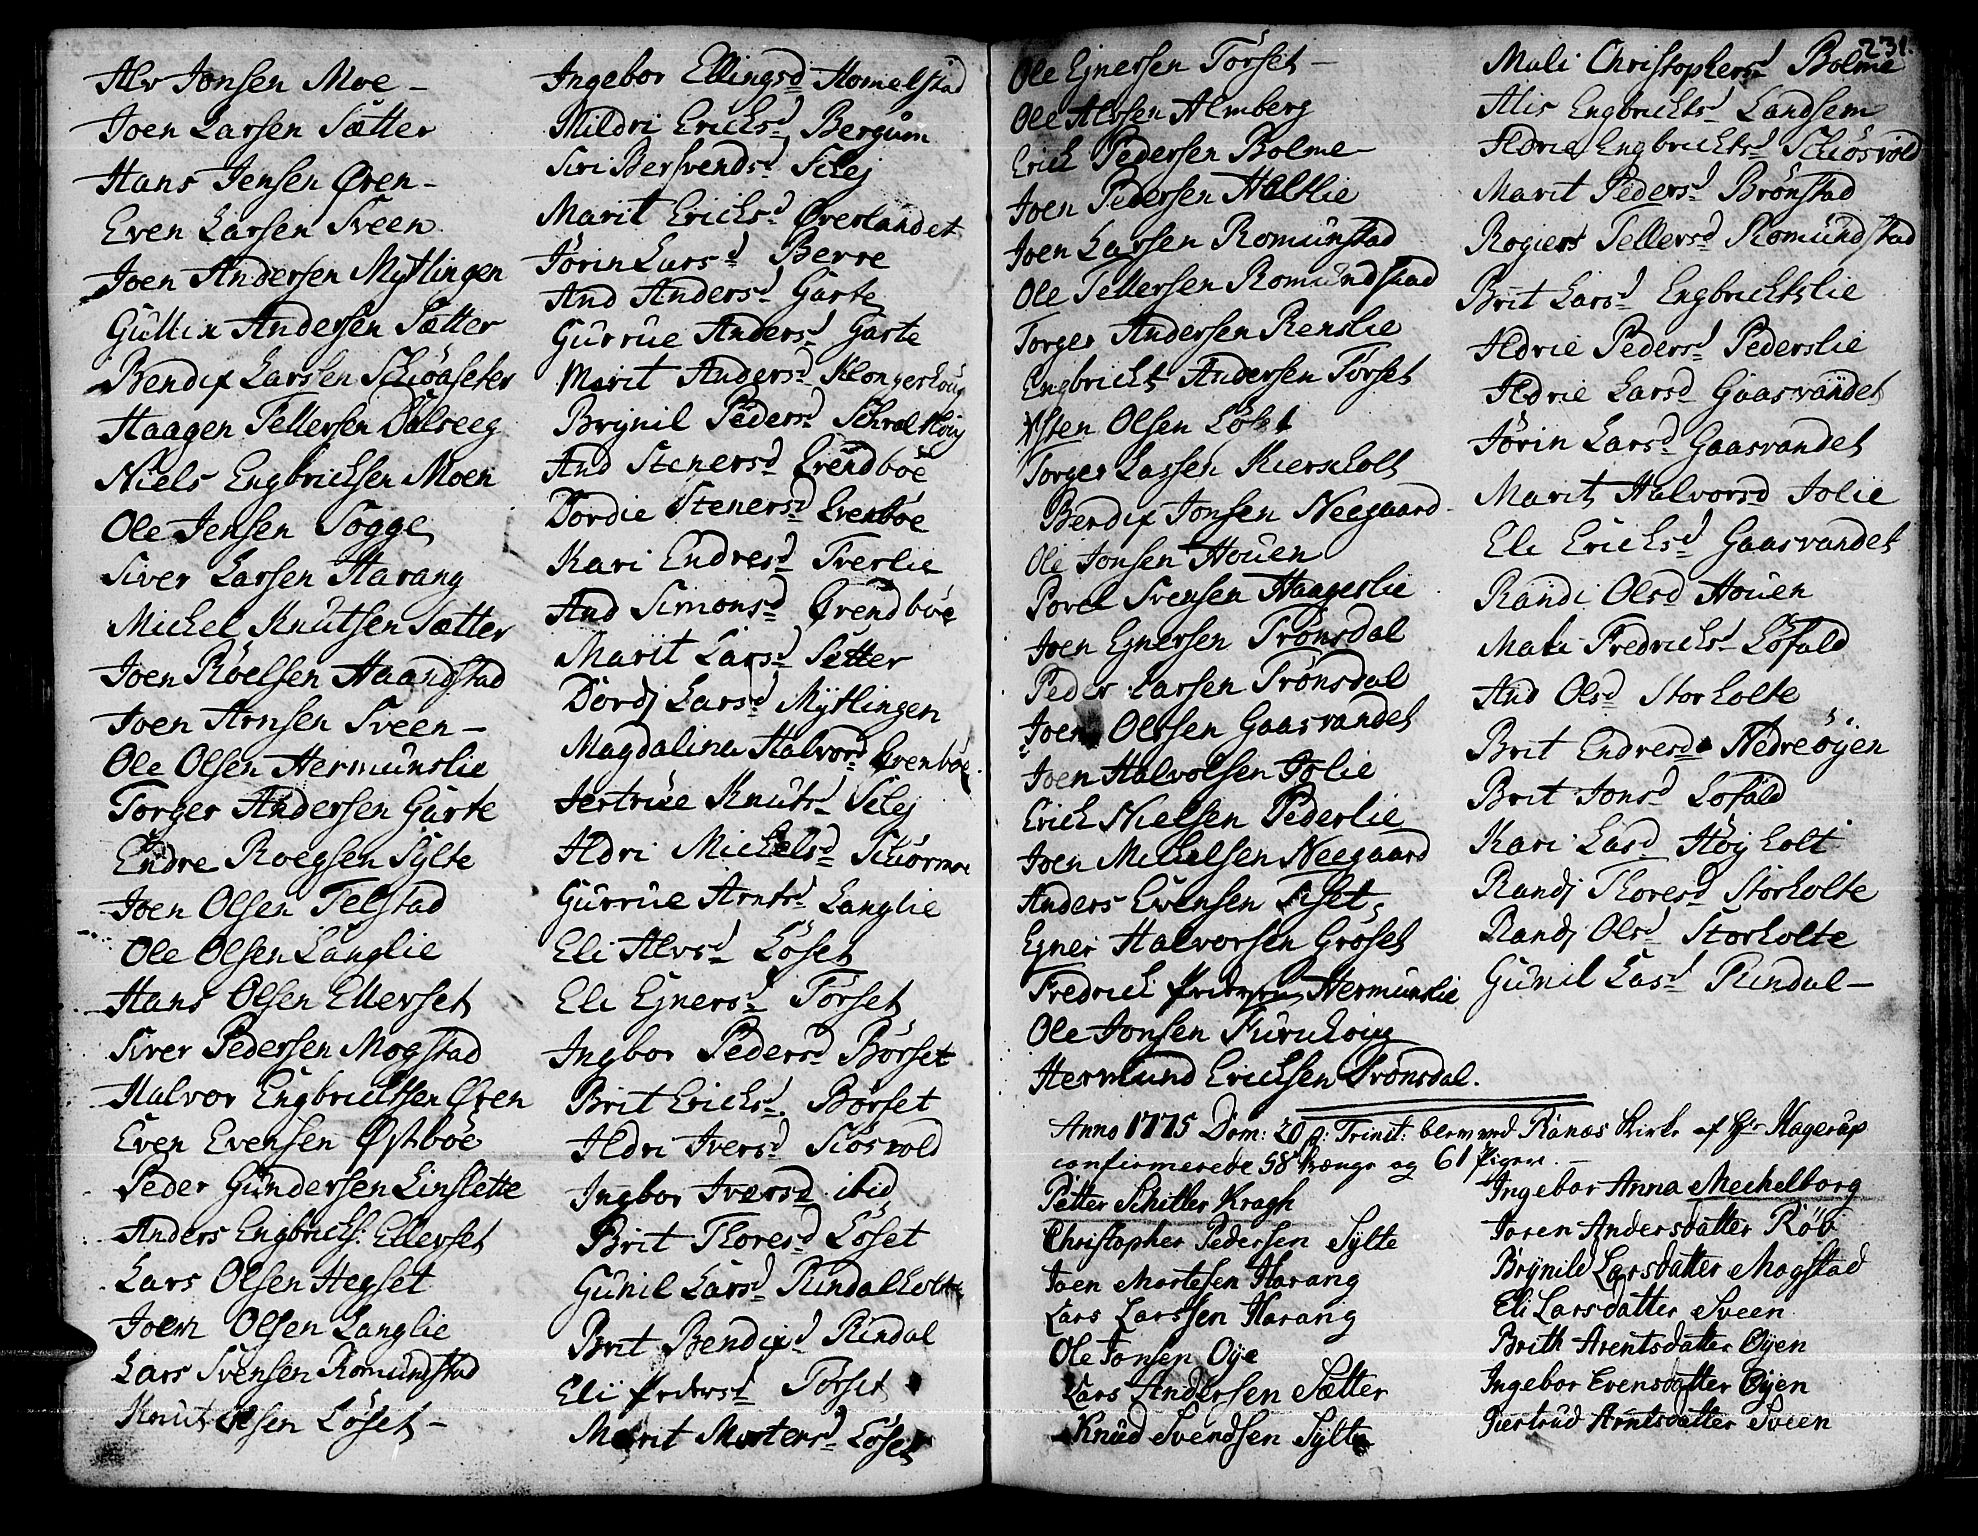 Alv Jonsen Moe -
Joen Larsen Sætter
Hans Jensen Øren -
Even Larsen Sveen
Joen Andersen Mytlingen
Gullix Andersen Sætter
Bendix Larsen Schiöaseter
Haagen Tellersen Dalseeg
Niels Engbrichsen Moen
Ole Jensen Sogge
Siver Larsen Harang
Michel Knutsen Sætter
Joen Röelsen Haandstad
Joen Arnsen Sveen -
Ole Olsen Hermunslie
Torger Andersen Garte
Endre Roegsen Sylte
Joen Olsen Telstad
Ole Olsen Langlie
Hans Olsen Ellevset
Siver Pedersen Mogstad
Halvor Engbrichtsen Øren
Even Evensen Østböe
Peder Gundersen Linslette
Anders Engbrichs: Ellevset
Lars Olsen Hegset
Joen Olsen Langlie
Lars Svensen Romundstad
Knut Olsen Löset -
Ingebor Ellingsd Homelstad
Mildri Ericksd Bergum
Siri Bersvendsd Silej
Marit Ericksd Øverlandet
Jörin Larsd Berre
And Andersd Garte
Gurrue Andersd Garte
Marit Andersd Klongerhöug
Brynil Pedersd Schralhöig
And Stenersd Grendböe
Dordie Stenersd Grenböe
Kari Endresd Trerlie
And Simonsd Grendböe
Marit Larsd Sætter
Dordj Larsd Mytlingen
Magdalina Halvord Grenböe
Jertrüe Knutsd Silej
Ildri Michelsd Schiörmoe
Gurrue Arntsd Langlie
Eli Alvsd Löset
Eli Ejnersd Torset
Ingbor Pedersd Börset
Brit Ericksd Börset
Ildri Iversd Siösvold
Ingbor Iversd ibid
Brit Thoresd Löset
Gunil Larsd Rindalholte
Brit Bendixd Rindal
Eli Pedersd Torset
Marit Mortensd Löset
231.
Ole Ejnersen Torset -
Ole Alvsen Almberg
Erich Pedersen Bolme -
Joen Pedersen Haltlie
Joen Larsen Romunstad
Ole Tellersen Romundstad
Torger Andersen Renslie
Engbricht Andersen Torset
Østen Olsen Löset
Torger Lassen Kiersholt
Bendix Jonsen Neegaard -
Ole Jonsen Houen
Povel Svensen Haageslie
Joen Ejnersen Trönsdal
Peder Larsen Trönsdal
Joen Olssen Gaasvandet
Joen Halvolsen Jolie
Erich Nielsen Pederlie
Joen Michelsen Neegaard
Anders Evensen Siset
Egner Halvorsen Gröset
Fredrich Pedersen Hermunslie
Ole Jonsen Furuhoug
Hermund Erichsen Trönsdal.
Muli Christophersd Bolme
Alis Engbrichtsd Landsem
Ildrie Engbrichtsd Schiösvold
Marit Pedersd Brönstad
Rogiers Tellersd Romundstad
Brit Larsd Engbrichtslie
Ildrie Pedersd Pederslie
Ildrie Larsd Gaasvandet
Jörin Larsd Gaasvandet
Marit Halvorsd Jolie
Eli Ericksd Gaasvandet
Randi Olsd Houen
Mali Fredricksd Löfald
And Olsd Storholte
Brit Endresd Nedreöjen
Brit Jonsd Lofald
Kari Lasd Höjholt
Randj Thoresd Storholte
Randj Olsd Storholte
Gunil Lasd Rindal -
Anno 1775 Dom: 20 p: Trinit: blev ved Ranæs Kirke af Hr Hagerup
confirmerede 58 Drænge og 61 Piger. -
Petter Schiller Kragh
Christopher Pedersen Sylte
Joen Mortesen Harang
Lars Larssen Harang
Ole Jonsen Oye
Lars Andersen Sætter
Knud Svendsen Sylte
Ingebor Anna Mechelborg
Joren Andersdatter Röv
Brynild Larsdatter Mogstad
Eli Larsdatter Sveen
Brith Arentsdatter Øyen
Ingebor Evensdatter Øyen
Giertrud Arntsdatter Sveen